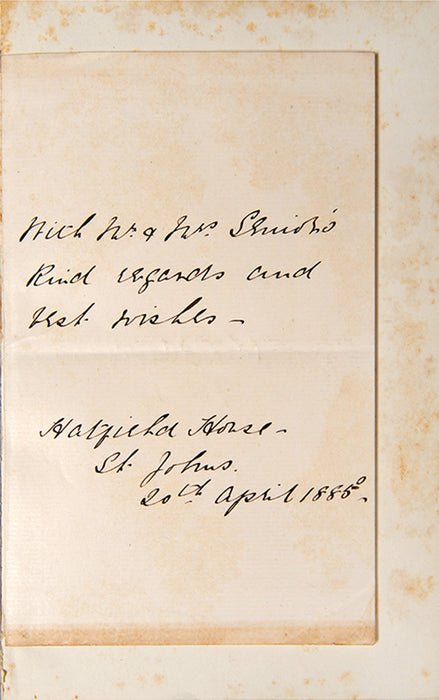 With Mr. & Mrs Senior's
Kind regards and
best wishes —
Hatfield House —
St Johns.
20th April 1885.